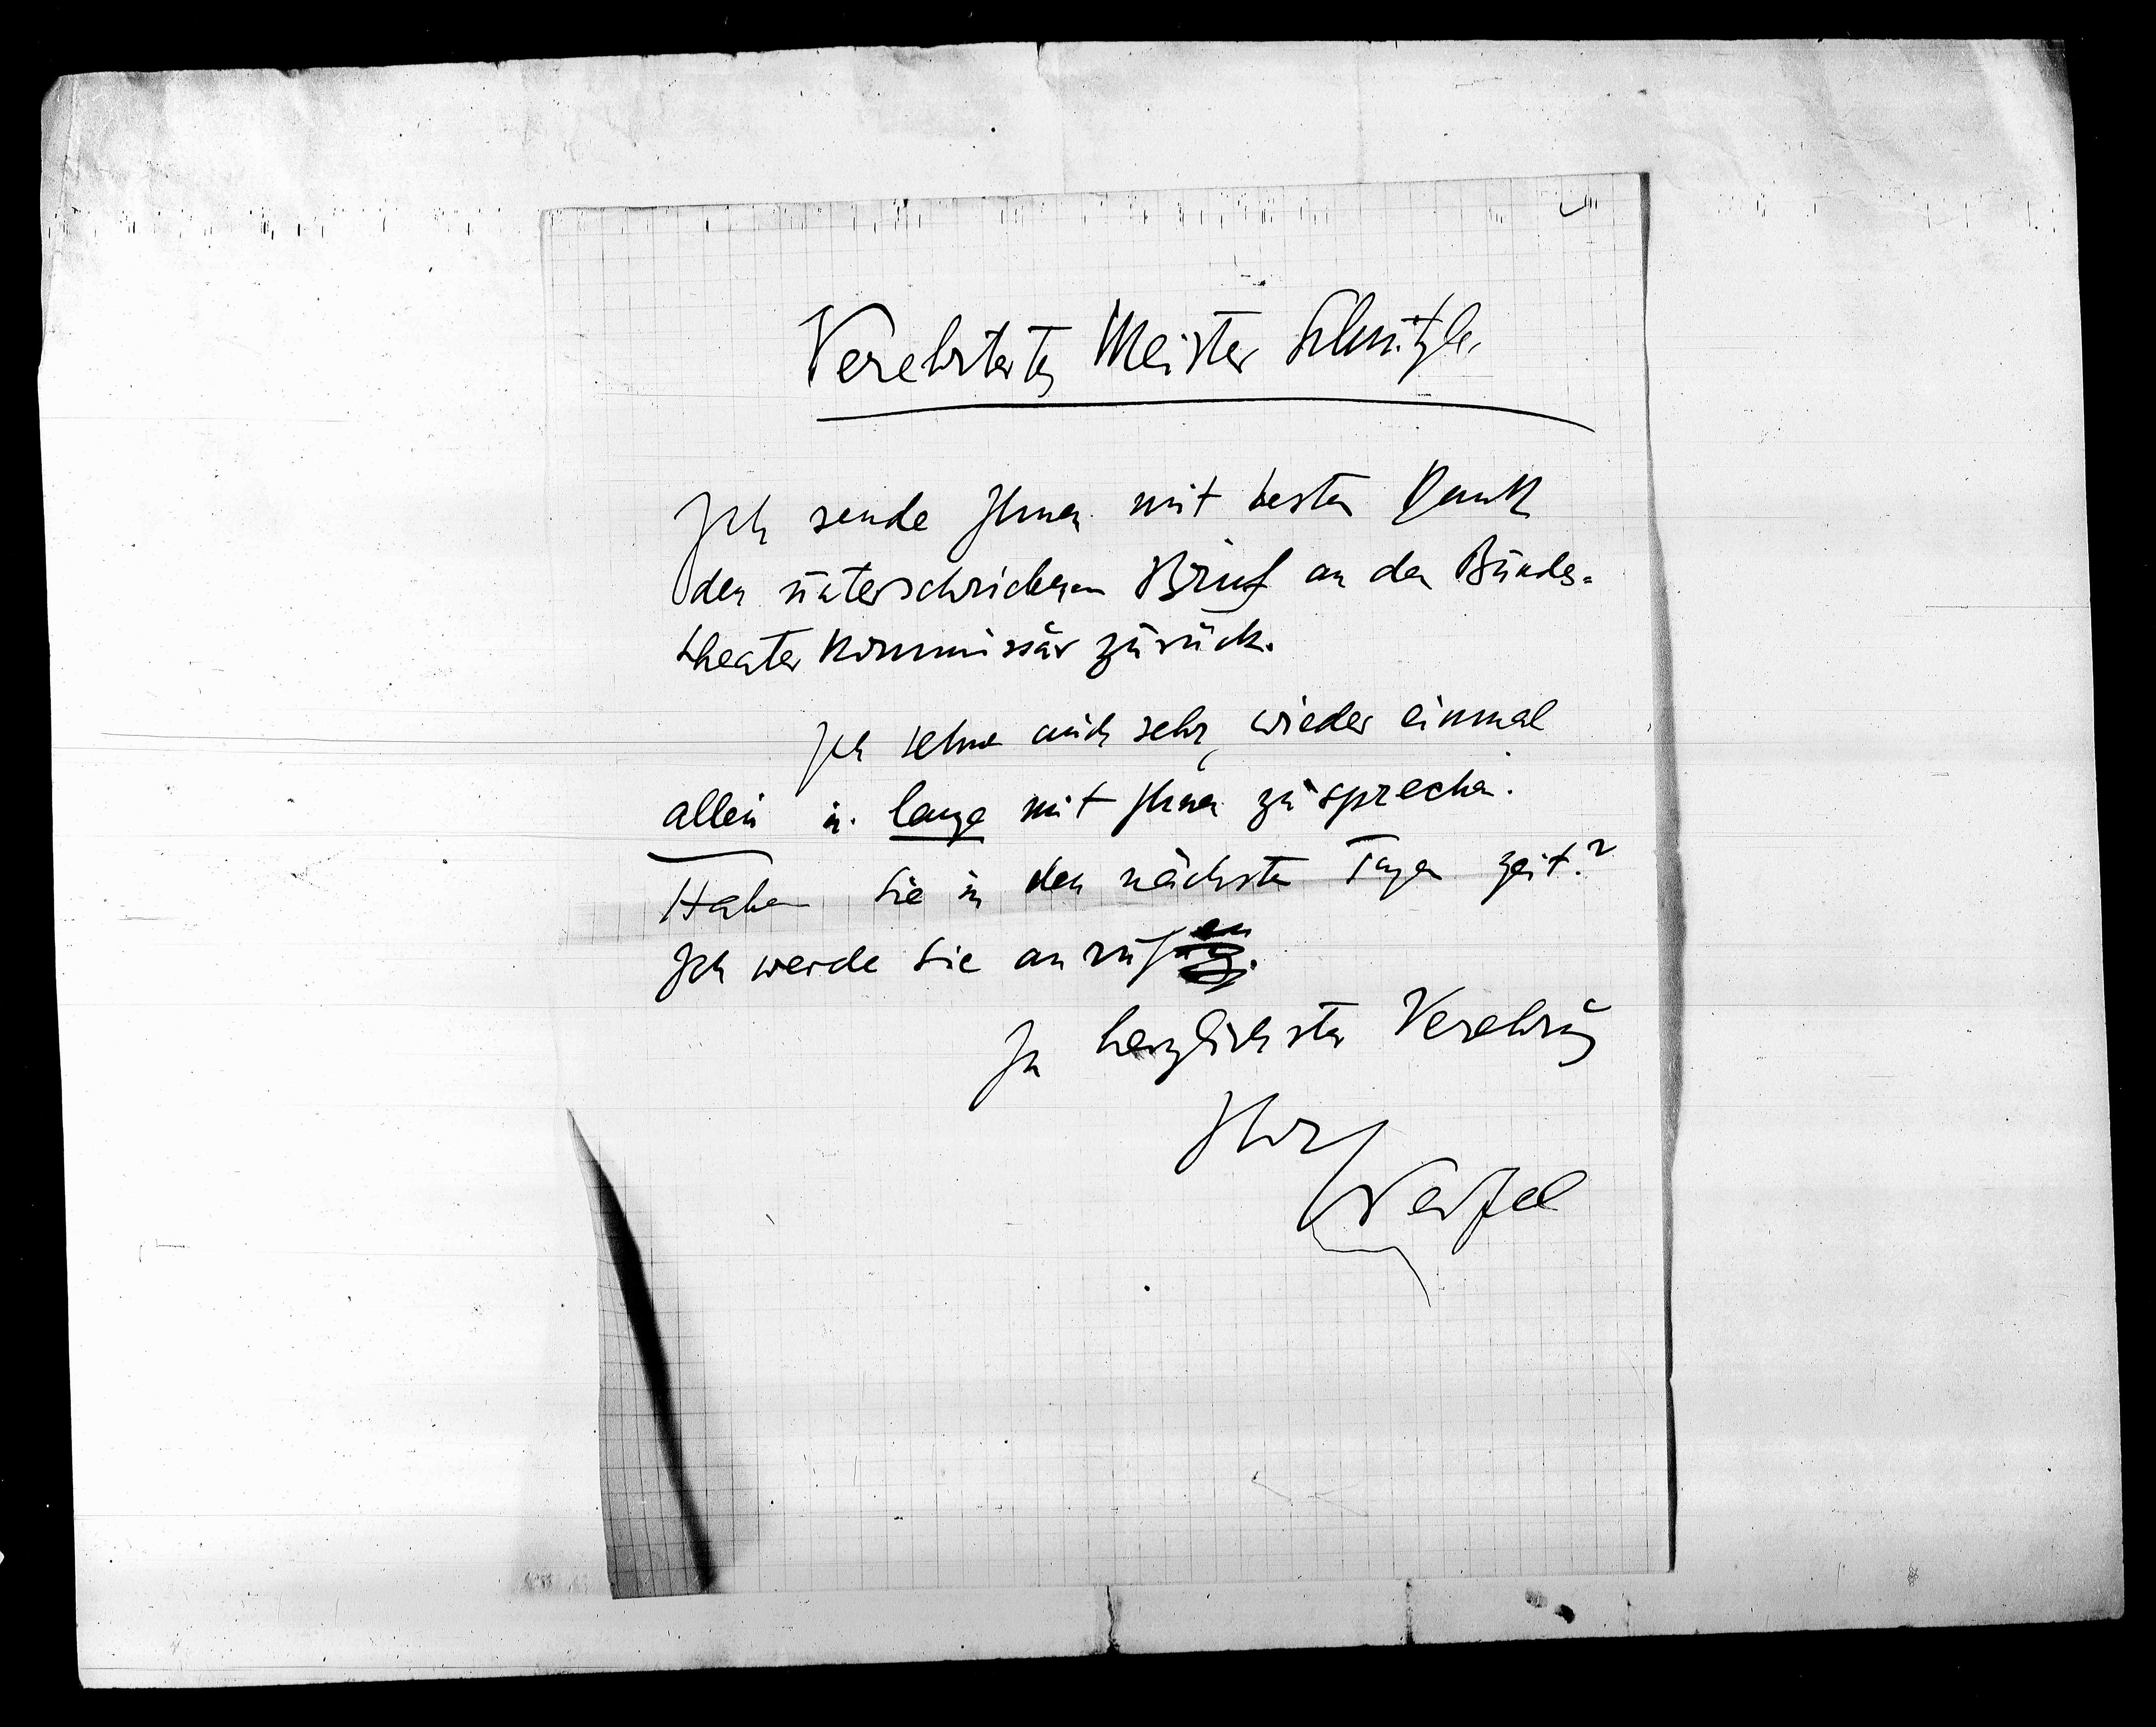 Verehrtester Meister Schnitzler
Ich sende Ihnen mit bestem Dank
den unterschriebenen Brief an den Bundes-
theaterkommissär zurück.
Ich sehne mich sehr, wieder einmal
allein u. lange mit Ihnen zu sprechen.
Haben Sie in den nächsten Tagen Zeit?
Ich werde Sie anrufen.
In herzlichster Verehrung
Ihr
Werfel